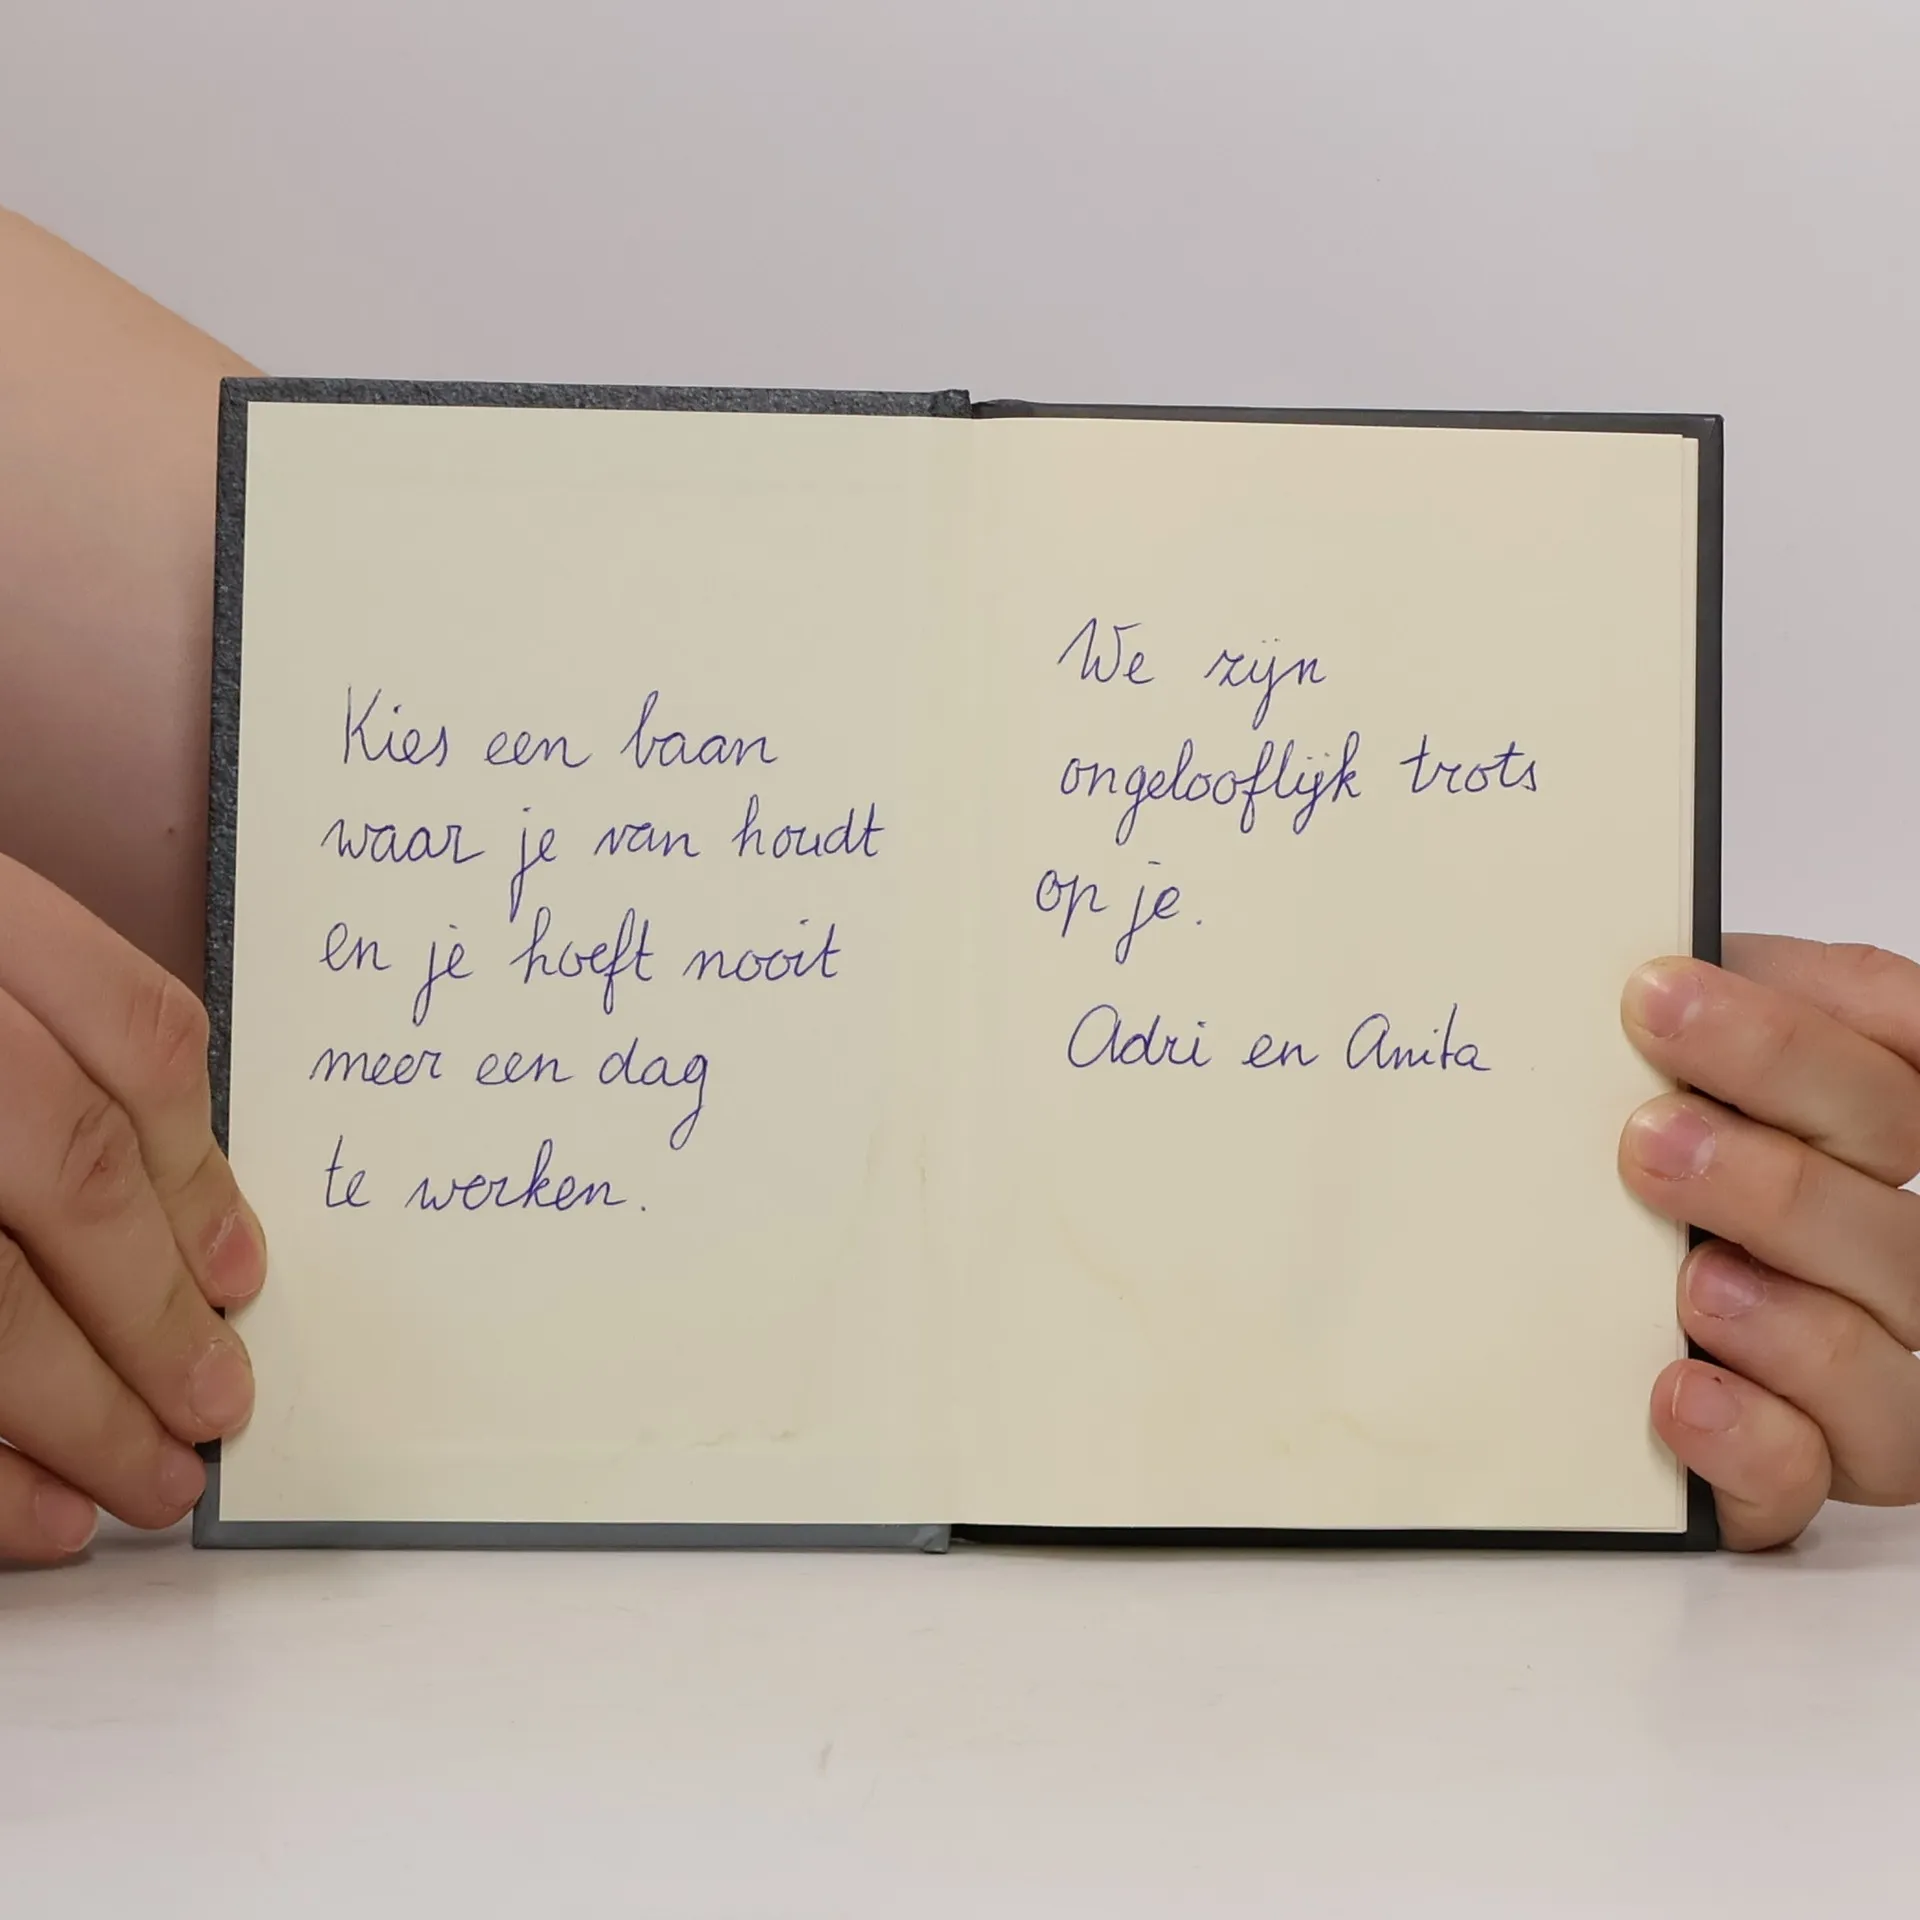 Kies een baan
waar je van houdt
en je hoeft nooit
meer een dag
te werken.
We zijn
ongelooflijk trots
op je.
Adri en Anita